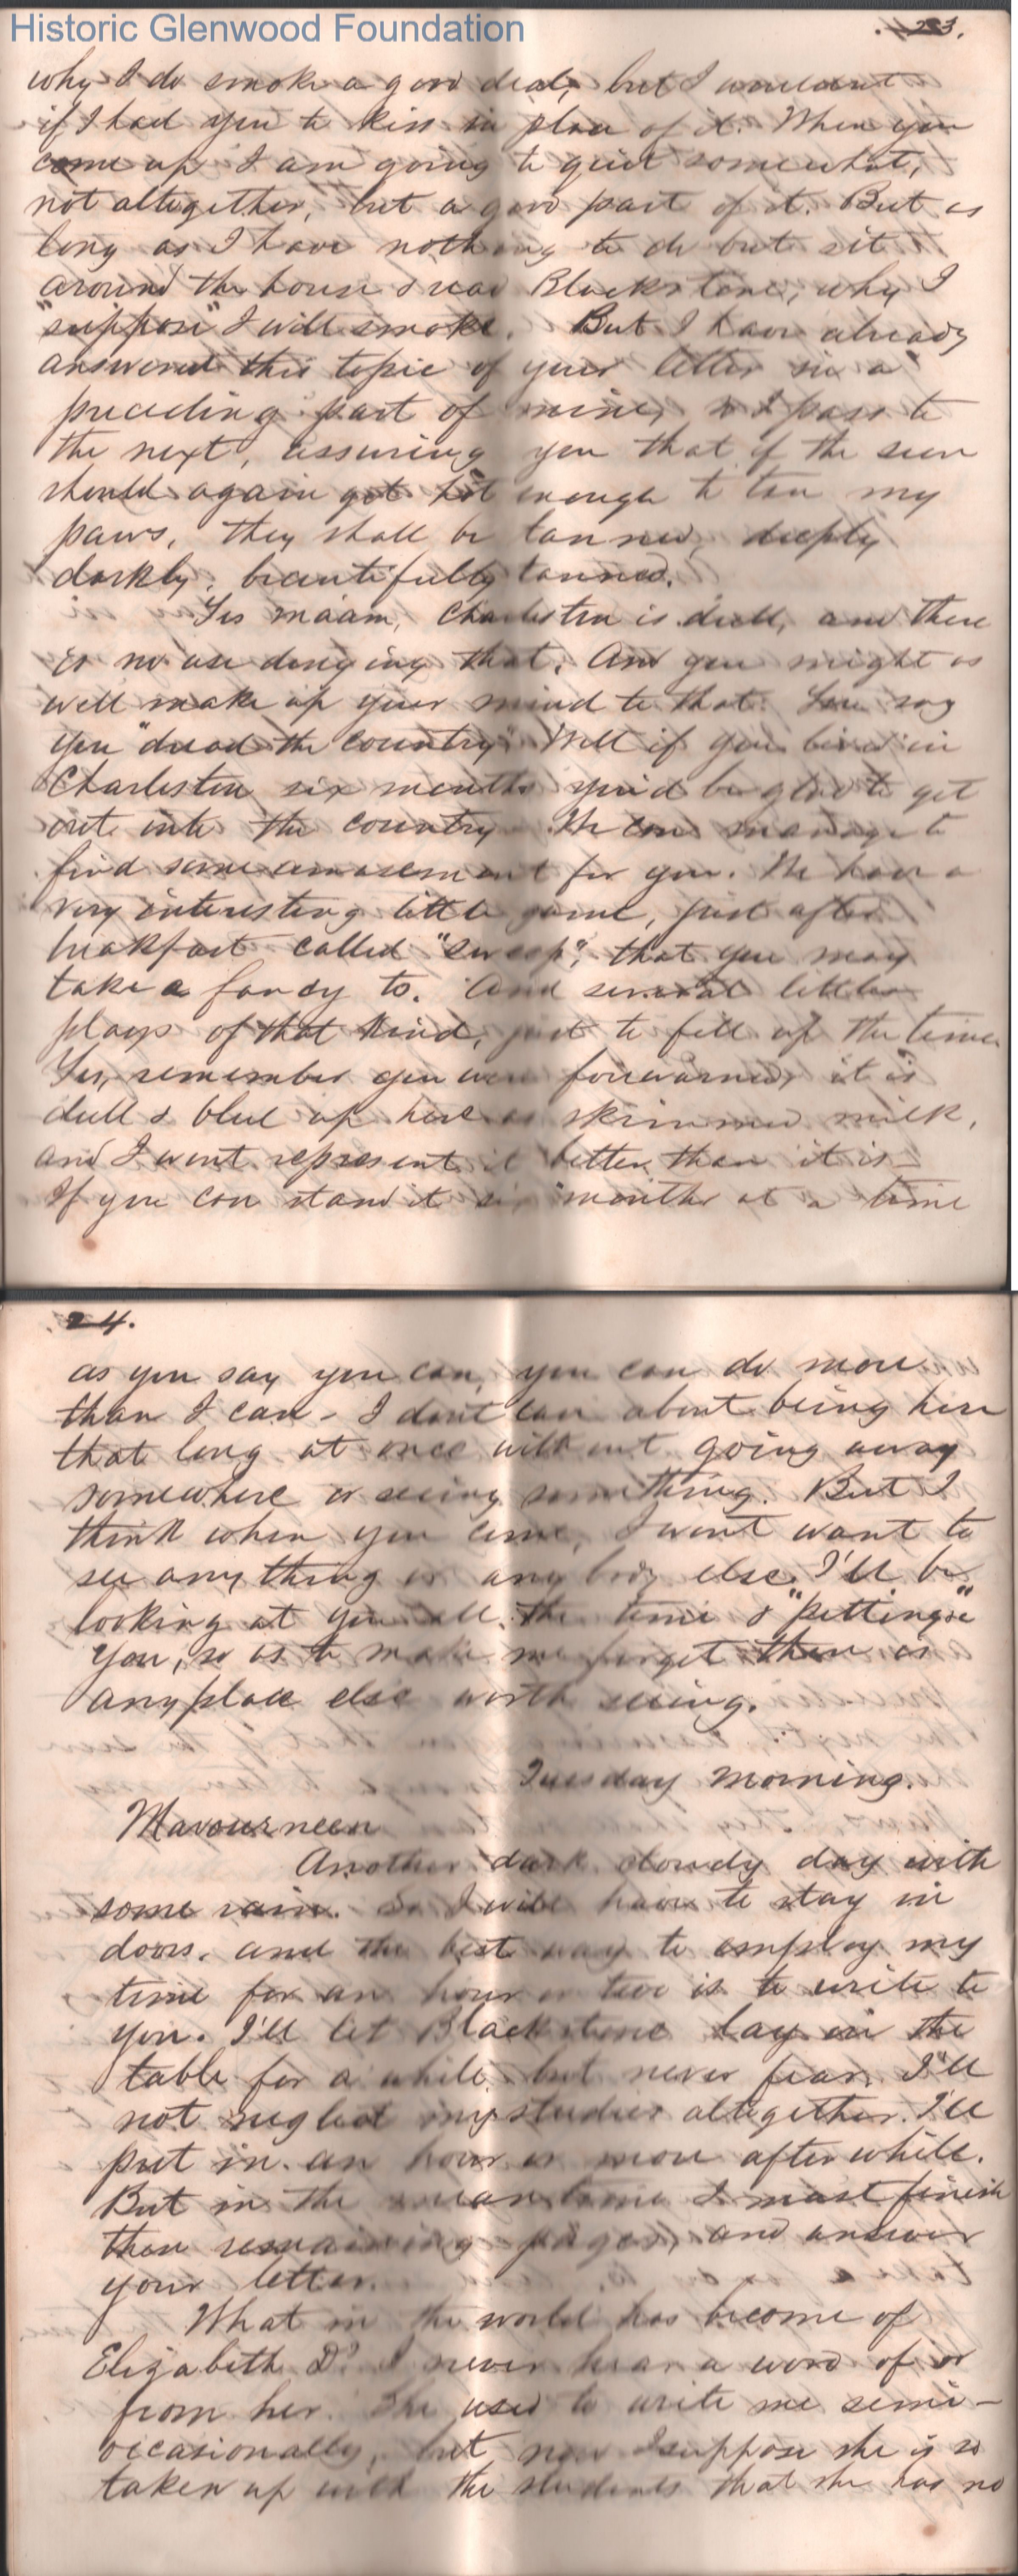 Historic Glenwood Foundation
23.
why I do smoke a good deal, but I wouldnt
if I had you to kiss in place of it. When you
come up I am going to quit somewhat,
not altogether, but a good part of it. But as
long as I have nothing to do but sit
around the house & read Blackstone, why I
"suppose" I will smoke. But I have already
answered this topic of your letter in a
preceding part of mine, so I pass to
the next, assuring you that if the sun
should again get hot enough to tan my
paws, they shall be tanned, deeply
darkly, beautifully tanned.
Yes ma'am, Charleston is dull, and there
is no use denying that. And you might as
well make up your mind to that. You say
you "dread the country". Well if you lived in
Charleston six months you'd be glad to get
out into the country. We can manage to
find some amusement for you. We have a
very interesting little game, just after
breakfast called "sweep", that you may
take a fancy to. And several little
plays of that kind, just to fill up the time.
Yes, remember you were forewarned, it is
dull & blue up here as skimmed milk,
and I wont represent it better than it is—
If you can stand it six months at a time
24.
as you say you can, you can do more
than I can - I dont care about being here
that long at once without going away
somewhere or seeing something. But I
think when you come, I wont want to
see any thing or any body else. I'll be
looking at you all the time & "petting"
you, so as to make me forget there is
anyplace else worth seeing.
Tuesday Morning.
Mavourneen
Another dark cloudy day with
some rain. So I will have to stay in
doors, and the best way to employ my
time for an hour or two is to write to
you. I'll let Blackstone lay on the
table for a while, but never fear, I'll
not neglect my studies altogether. I'll
put in an hour or more after while.
But in the mean time I must finish
these remaining pages, and answer
your letter.
What in the world has become of
Elizabeth D? I never hear a word of or
from her. She used to write me semi-
occasionally, but now I suppose she is so
taken up with the students that she has no